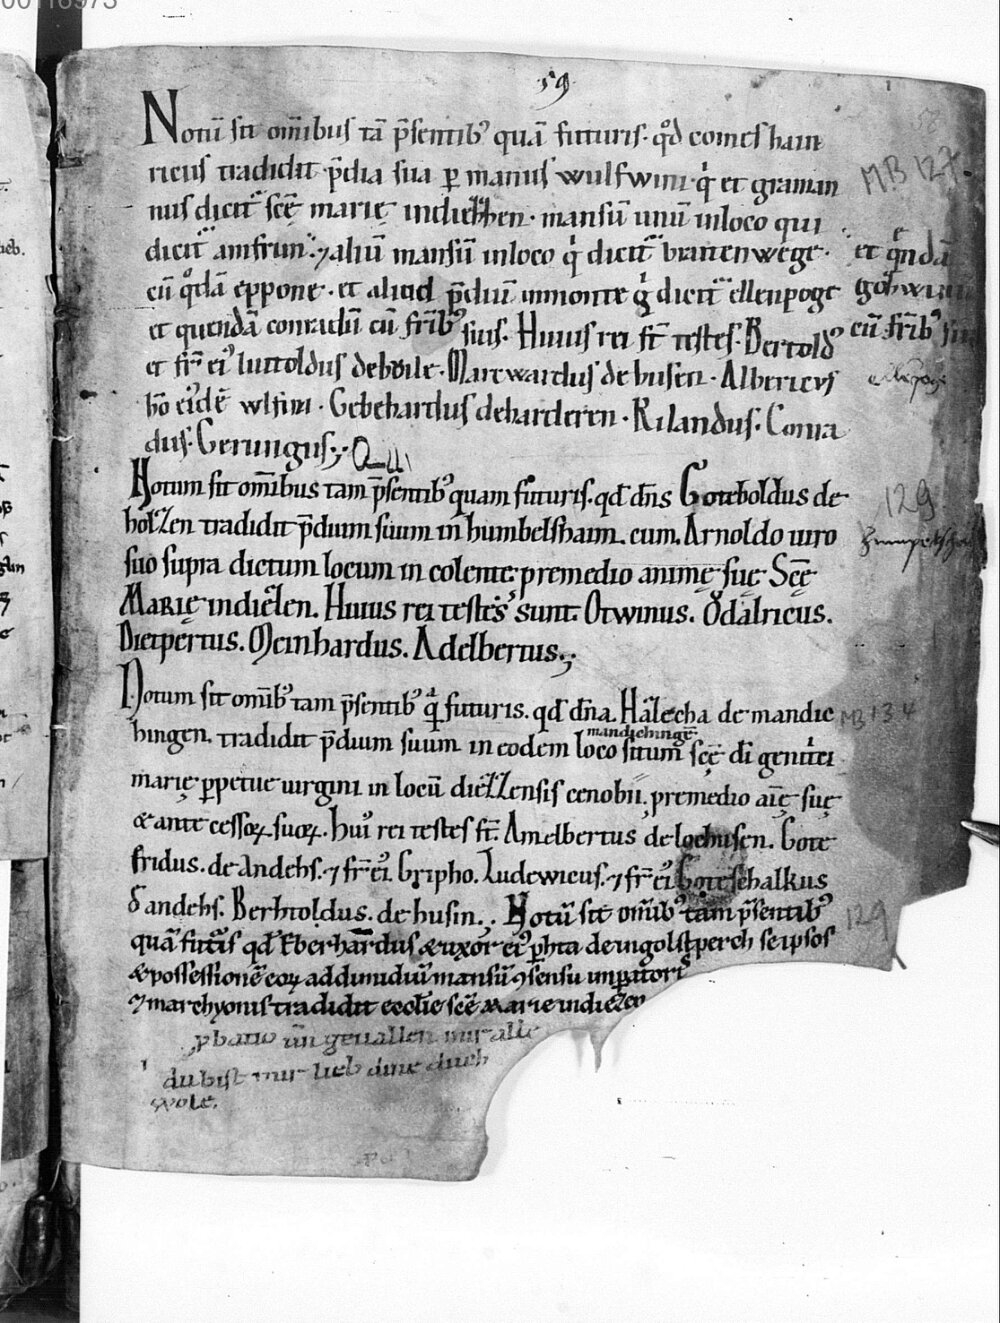 59
Notū sit om̄ibus tā p̄sentibꝰ quā futuris. qd̄ comes hain
ricus tradidit p̄dia sua ꝑ manus wulfwini. qͥ et graman
nus dicit᷑ sc̄ę marię indiezhen. mansū unū inloco qui
dicit᷑ amfrun. ⁊ aliū mansū inloco qͥ dicit᷑ brattenwege. et quendā
cū qͦdā eppone. et aliud p̄diū inmonte qͥ dicit᷑ ellenpoge
et quendā conradū cū fr̄ibꝰ suis. Huius rei st̄ testes. Bertoldꝰ cū fr̄ibꝰ
et fr̄ eiꝰ luitoldus de Marcwardus de husen. Albericus
ho eiꝰdē wlfini. Gebehardus deharderen. Rilandus. Conra
dus. Gerungus.
Notum sit om̄ibus tam p̄sentibꝰ quam futuris. qd̄ dn̄s Goteboldus de
holzen tradidit p̄dium suum in humbelshaim. cum. Arnoldo uiro
suo supra dictum locum in colente. premedio animę suę Sc̄ę
Marię indiezen. Huius rei testes sunt. Otwinus. Ǒdalricus.
Dietpertus. Meinhardus. Adelbertus.
Notum sit om̄ibꝰ tam p̄sentibꝰ qᷓ futuris. qd̄ dn̄a. Hazecha de mandic
hingen. tradidit p̄dium suum in eodem loco mandichingē situm sc̄ę dī genitͥci
marię ꝑpetue uirgini in locū diezzensis cenobii. premedio aīę suę
& ante cessoꝝ suoꝝ. huiꝰ rei testes st̄. Amelbertus de lochusen. Gote
fridus. de Andehs. ⁊ fr̄ eiꝰ. Gripho. Ludewicus. ⁊ fr̄ eiꝰ Goteschalkus
d' andehs. Berhtoldus. de husin. Notū sit om̄ibꝰ tam p̄sentibꝰ
quā futuris qd̄ Eberhardus & uxor eiꝰ ꝑhta de ingoltsperch seipsos
& possessionē eoꝝ ad dimidiū mansū ꝯsensu inꝑatoris
⁊ marchyonis tradidit ecclie sc̄e Marie indiezen
uñ geuallen mir alle
du bist mir lieb ane
wole.
MB 127
129
MB 134
129